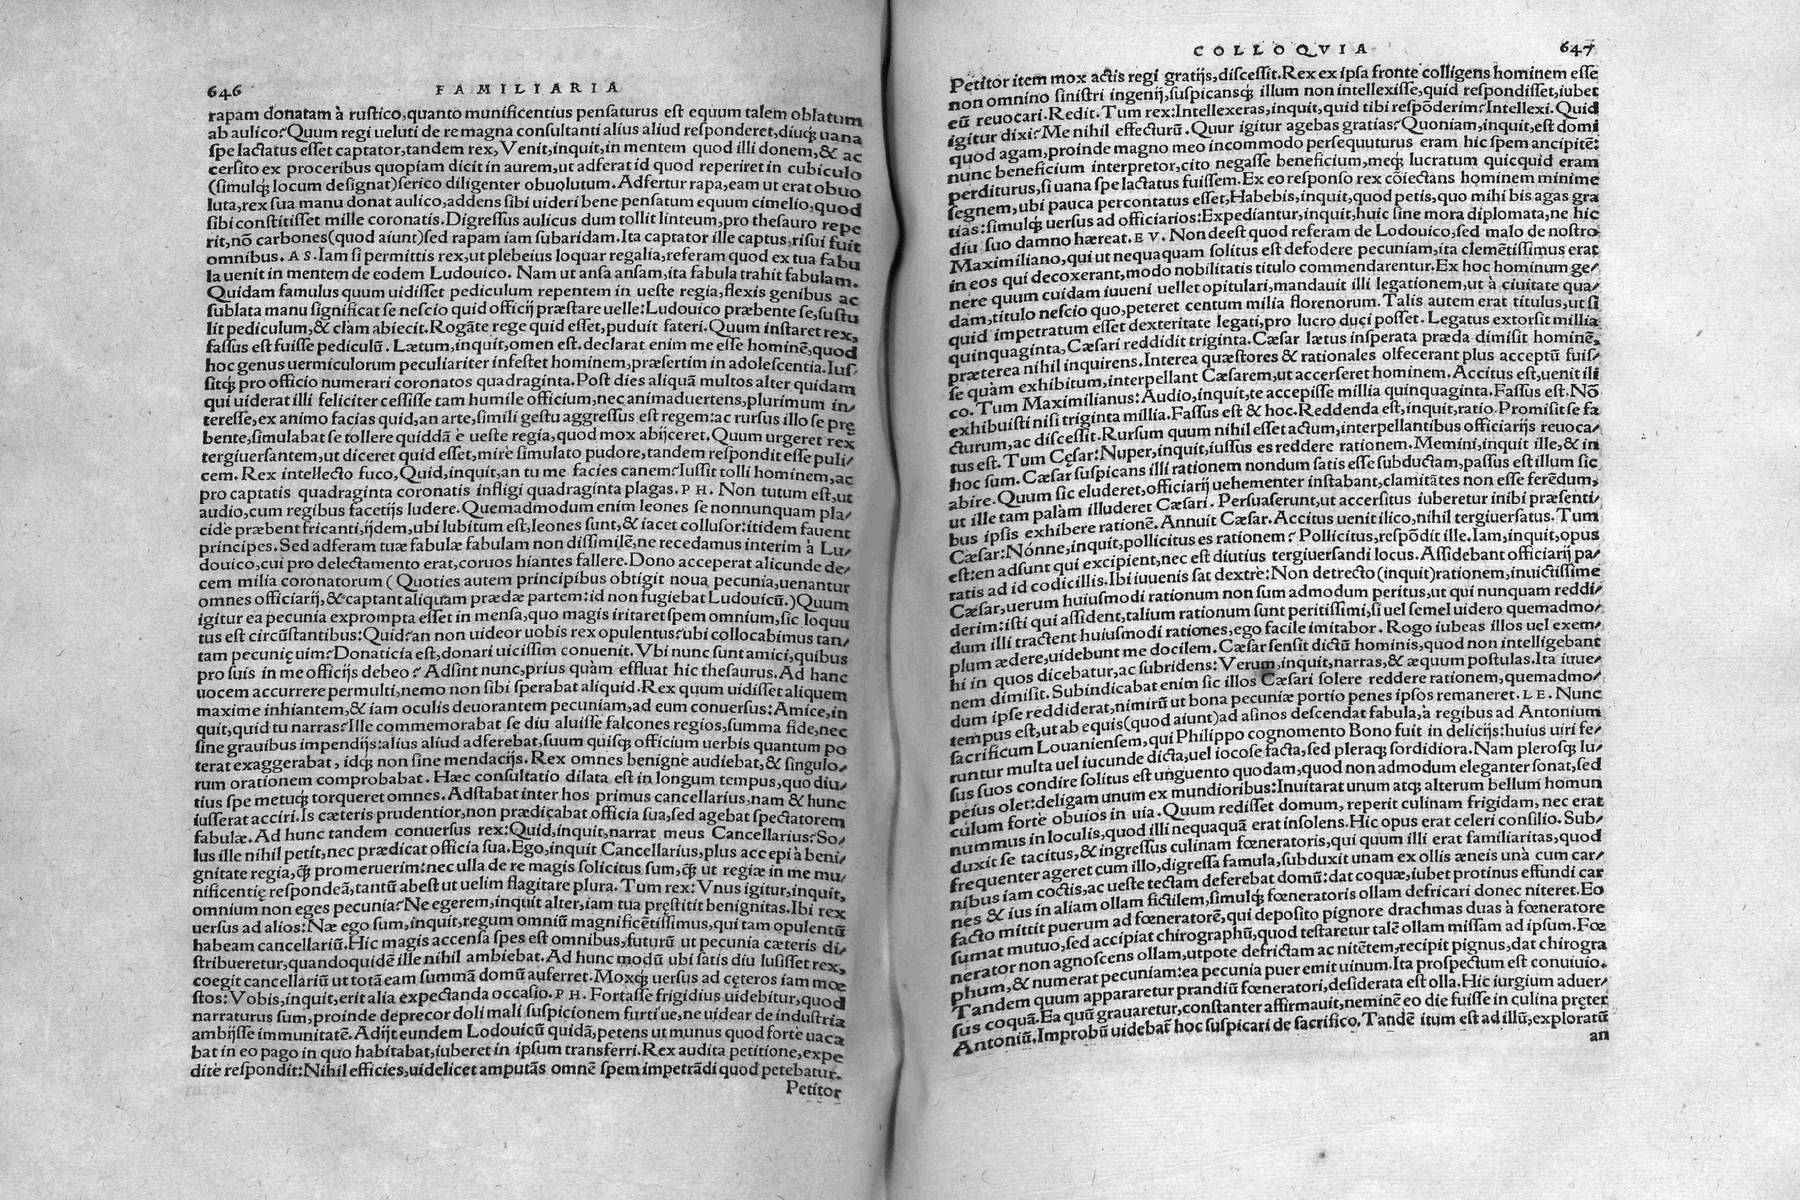 646 FAMILIARIA
rapam donatam à rustico, quanto munificentius pensaturus est equum talem oblatum
ab aulico? Quum regi ueluti de re magna consultanti alius aliud responderet, diuq́; uana
spe lactatus esset captator, tandem rex, Venit, inquit, in mentem quod illi donem, & ac
cersito ex proceribus quopiam dicit in aurem, ut adferat id quod reperiret in cubiculo
(simulq́; locum designat) serico diligenter obuolutum. Adfertur rapa, eam ut erat obuo
luta, rex sua manu donat aulico, addens sibi uideri bene pensatum equum cimelio, quod
sibi constitisset mille coronatis. Digressus aulicus dum tollit linteum, pro thesauro repe
rit, nō carbones (quod aiunt) sed rapam iam subaridam. Ita captator ille captus, risui fuit
omnibus. AS. Iam si permittis rex, ut plebeius loquar regalia, referam quod ex tua fabu
la uenit in mentem de eodem Ludouico. Nam ut ansa ansam, ita fabula trahit fabulam.
Quidam famulus quum uidisset pediculum repentem in ueste regia, flexis genibus ac
sublata manu significat se nescio quid officij præstare uelle: Ludouico præbente se, sustu
lit pediculum, & clàm abiecit. Rogāte rege quid esset, puduit fateri. Quum instaret rex,
fassus est fuisse pediculū. Lætum, inquit, omen est. declarat enim me esse hominē, quod
hoc genus uermiculorum peculiariter infestet hominem, præsertim in adolescentia. Ius-
sitq́; pro officio numerari coronatos quadraginta. Post dies aliquā multos alter quidam
qui uiderat illi feliciter cessisse tam humile officium, nec animaduertens, plurimum in-
teresse, ex animo facias quid, an arte, simili gestu aggressus est regem: ac rursus illo se prę
bente, simulabat se tollere quiddā è ueste regia, quod mox abijceret. Quum urgeret rex
tergiuersantem, ut diceret quid esset, mirè simulato pudore, tandem respondit esse puli-
cem. Rex intellecto fuco, Quid, inquit, an tu me facies canem? Iussit tolli hominem, ac
pro captatis quadraginta coronatis infligi quadraginta plagas. PH. Non tutum est, ut
audio, cum regibus facetijs ludere. Quemadmodum enim leones se nonnunquam pla-
cidè præbent fricanti, ijdem, ubi lubitum est, leones sunt, & iacet collusor: itidem fauent
principes. Sed adferam tuæ fabulæ fabulam non dissimilē, ne recedamus interim à Lu-
douico, cui pro delectamento erat, coruos hiantes fallere. Dono acceperat alicunde de-
cem milia coronatorum (Quoties autem principibus obtigit noua pecunia, uenantur
omnes officiarij, & captant aliquam prædæ partem: id non fugiebat Ludouicū.) Quum
igitur ea pecunia exprompta esset in mensa, quo magis iritaret spem omnium, sic loquu
tus est circūstantibus: Quid? an non uideor uobis rex opulentus? ubi collocabimus tan-
tam pecunię uim? Donaticia est, donari uicissim conuenit. Vbi nunc sunt amici, quibus
pro suis in me officijs debeo? Adsint nunc, prius quàm effluat hic thesaurus. Ad hanc
uocem accurrere permulti, nemo non sibi sperabat aliquid. Rex quum uidisset aliquem
maxime inhiantem, & iam oculis deuorantem pecuniam, ad eum conuersus: Amice, in
quit, quid tu narras? Ille commemorabat se diu aluisse falcones regios, summa fide, nec
sine grauibus impendijs: alius aliud adferebat, suum quisq́; officium uerbis quantum po
terat exaggerabat, idq́; non sine mendacijs. Rex omnes benignè audiebat, & singulo-
rum orationem comprobabat. Hæc consultatio dilata est in longum tempus, quo diu-
tius spe metuq́; torqueret omnes. Adstabat inter hos primus cancellarius, nam & hunc
iusserat acciri. Is cæteris prudentior, non prædicabat officia sua, sed agebat spectatorem
fabulæ. Ad hunc tandem conuersus rex: Quid, inquit, narrat meus Cancellarius? So-
lus ille nihil petit, nec prædicat officia sua. Ego, inquit Cancellarius, plus accepi à beni-
gnitate regia, q̃ promeruerim: nec ulla de re magis solicitus sum, q̃ ut regiæ in me mu-
nificentię respondeā, tantū abest ut uelim flagitare plura. Tum rex: Vnus igitur, inquit,
omnium non eges pecunia? Ne egerem, inquit alter, iam tua pręstitit benignitas. Ibi rex
uersus ad alios: Næ ego sum, inquit, regum omniū magnificētissimus, qui tam opulentū
habeam cancellariū. Hic magis accensa spes est omnibus, futurū ut pecunia cæteris di-
stribueretur, quandoquidē ille nihil ambiebat. Ad hunc modū ubi satis diu lusisset rex,
coegit cancellariū ut totā eam summā domū auferret. Moxq́; uersus ad cęteros iam mœ
stos: Vobis, inquit, erit alia expectanda occasio. PH. Fortasse frigidius uidebitur, quod
narraturus sum, proinde deprecor doli mali suspicionem furti ue, ne uidear de industria
ambijsse immunitatē. Adijt eundem Lodouicū quidā, petens ut munus quod fortè uaca
bat in eo pago in quo habitabat, iuberet in ipsum transferri. Rex audita petitione, expe
ditè respondit: Nihil efficies, uidelicet amputās omnē spem impetrādi quod petebatur.
Petitor
COLLOQVIA 647
Petitor item mox actis regi gratijs, discessit. Rex ex ipsa fronte colligens hominem esse
non omnino sinistri ingenij, suspicansq́; illum non intellexisse, quid respondisset, iubet
eū reuocari. Redit. Tum rex: Intellexeras, inquit, quid tibi respōderim? Intellexi. Quid
igitur dixi? Me nihil effecturū. Quur igitur agebas gratias? Quoniam, inquit, est domi
quod agam, proinde magno meo incommodo persequuturus eram hic spem ancipitē:
nunc beneficium interpretor, cito negasse beneficium, meq́; lucratum quicquid eram
perditurus, si uana spe lactatus fuissem. Ex eo responso rex cōiectans hominem minime
segnem, ubi pauca percontatus esset, Habebis, inquit, quod petis, quo mihi bis agas gra
tias: simulq́; uersus ad officiarios: Expediantur, inquit, huic sine mora diplomata, ne hic
diu suo damno hæreat. EV. Non deest quod referam de Lodouico, sed malo de nostro
Maximiliano, qui ut nequaquam solitus est defodere pecuniam, ita clemētissimus erat
in eos qui decoxerant, modo nobilitatis titulo commendarentur. Ex hoc hominum ge-
nere quum cuidam iuueni uellet opitulari, mandauit illi legationem, ut à ciuitate qua-
dam, titulo nescio quo, peteret centum milia florenorum. Talis autem erat titulus, ut si
quid impetratum esset dexteritate legati, pro lucro duci posset. Legatus extorsit millia
quinquaginta, Cæsari reddidit triginta. Cæsar lætus insperata præda dimisit hominē,
præterea nihil inquirens. Interea quæstores & rationales olfecerant plus acceptū fuis-
se quàm exhibitum, interpellant Cæsarem, ut accerseret hominem. Accitus est, uenit ili
co. Tum Maximilianus: Audio, inquit, te accepisse millia quinquaginta. Fassus est. Nō
exhibuisti nisi triginta millia. Fassus est & hoc. Reddenda est, inquit, ratio. Promisit se fa
cturum, ac discessit. Rursum quum nihil esset actum, interpellantibus officiarijs reuoca-
tus est. Tum Cęsar: Nuper, inquit, iussus es reddere rationem. Memini, inquit ille, & in
hoc sum. Cæsar suspicans illi rationem nondum satis esse subductam, passus est illum sic
abire. Quum sic eluderet, officiarij uehementer instabant, clamitātes non esse ferēdum,
ut ille tam palàm illuderet Cæsari. Persuaserunt, ut accersitus iuberetur inibi præsenti-
bus ipsis exhibere rationē. Annuit Cæsar. Accitus uenit ilico, nihil tergiuersatus. Tum
Cæsar: Nónne, inquit, pollicitus es rationem? Pollicitus, respōdit ille. Iam, inquit, opus
est: en adsunt qui excipient, nec est diutius tergiuersandi locus. Assidebant officiarij pa-
ratis ad id codicillis. Ibi iuuenis sat dextrè: Non detrecto (inquit) rationem, inuictissime
Cæsar, uerum huiusmodi rationum non sum admodum peritus, ut qui nunquam reddi-
derim: isti qui assident, talium rationum sunt peritissimi, si uel semel uidero quemadmo-
dum illi tractent huiusmodi rationes, ego facile imitabor. Rogo iubeas illos uel exem-
plum ædere, uidebunt me docilem. Cæsar sensit dictū hominis, quod non intelligebant
hi in quos dicebatur, ac subridens: Verum, inquit, narras, & æquum postulas. Ita iuue-
nem dimisit. Subindicabat enim sic illos Cæsari solere reddere rationem, quemadmo-
dum ipse reddiderat, nimirū ut bona pecuniæ portio penes ipsos remaneret. LE. Nunc
tempus est, ut ab equis (quod aiunt) ad asinos descendat fabula, à regibus ad Antonium
sacrificum Louaniensem, qui Philippo cognomento Bono fuit in delicijs: huius uiri fe-
runtur multa uel iucunde dicta, uel iocose facta, sed pleraq́; sordidiora. Nam plerosq́; lu-
sus suos condire solitus est unguento quodam, quod non admodum eleganter sonat, sed
peius olet: deligam unum ex mundioribus: Inuitarat unum atq́; alterum bellum homun
culum fortè obuios in uia. Quum redisset domum, reperit culinam frigidam, nec erat
nummus in loculis, quod illi nequaquā erat insolens. Hic opus erat celeri consilio. Sub-
duxit se tacitus, & ingressus culinam fœneratoris, qui quum illi erat familiaritas, quod
frequenter ageret cum illo, digressa famula, subduxit unam ex ollis æneis unà cum car-
nibus iam coctis, ac ueste tectam deferebat domū: dat coquæ, iubet protinus effundi car
nes & ius in aliam ollam fictilem, simulq́; fœneratoris ollam defricari donec niteret. Eo
facto mittit puerum ad fœneratorē, qui deposito pignore drachmas duas à fœneratore
sumat mutuo, sed accipiat chirographū, quod testaretur talē ollam missam ad ipsum. Fœ
nerator non agnoscens ollam, utpote defrictam ac nitētem, recipit pignus, dat chirogra
phum, & numerat pecuniam: ea pecunia puer emit uinum. Ita prospectum est conuiuio.
Tandem quum appararetur prandiū fœneratori, desiderata est olla. Hic iurgium aduer-
sus coquā. Ea quū grauaretur, constanter affirmauit, neminē eo die fuisse in culina pręter
Antoniū. Improbū uidebat̄ hoc suspicari de sacrifico. Tandē itum est ad illū, exploratū
an